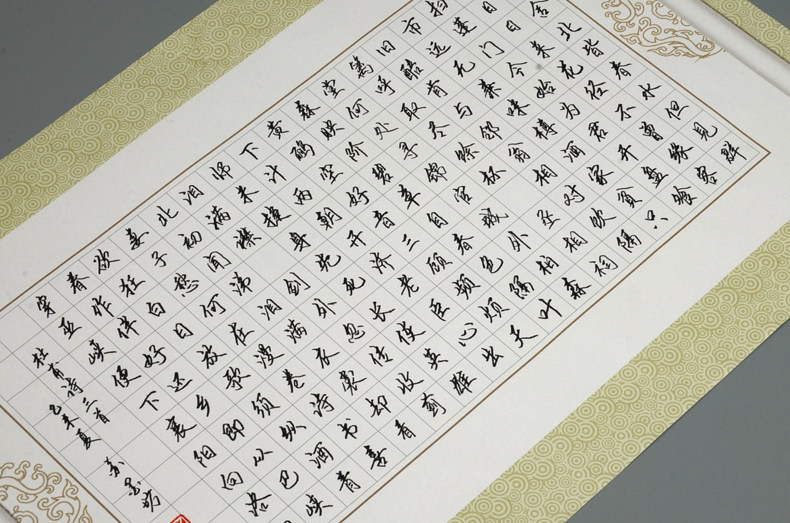 舍北皆春水但见群
日日来花径不曾缘客
扫蓬门今始为君开盘飧
市远无兼味樽酒家贫只
旧醅肯与邻翁相对饮隔
篱呼取尽余杯丞相祠
堂何处寻锦官城外柏森
森映阶碧草自春色隔叶
黄鹂空好音三顾频烦天
下计两朝开济老臣心出
师未捷身先死长使英雄
泪满襟剑外忽传收蓟
北初闻涕泪满衣裳却看
妻子愁何在漫卷诗书喜
欲狂白日放歌须纵酒青
春作伴好还乡即从巴峡
穿巫峡便下襄阳向洛
杜甫诗三首
乙未夏